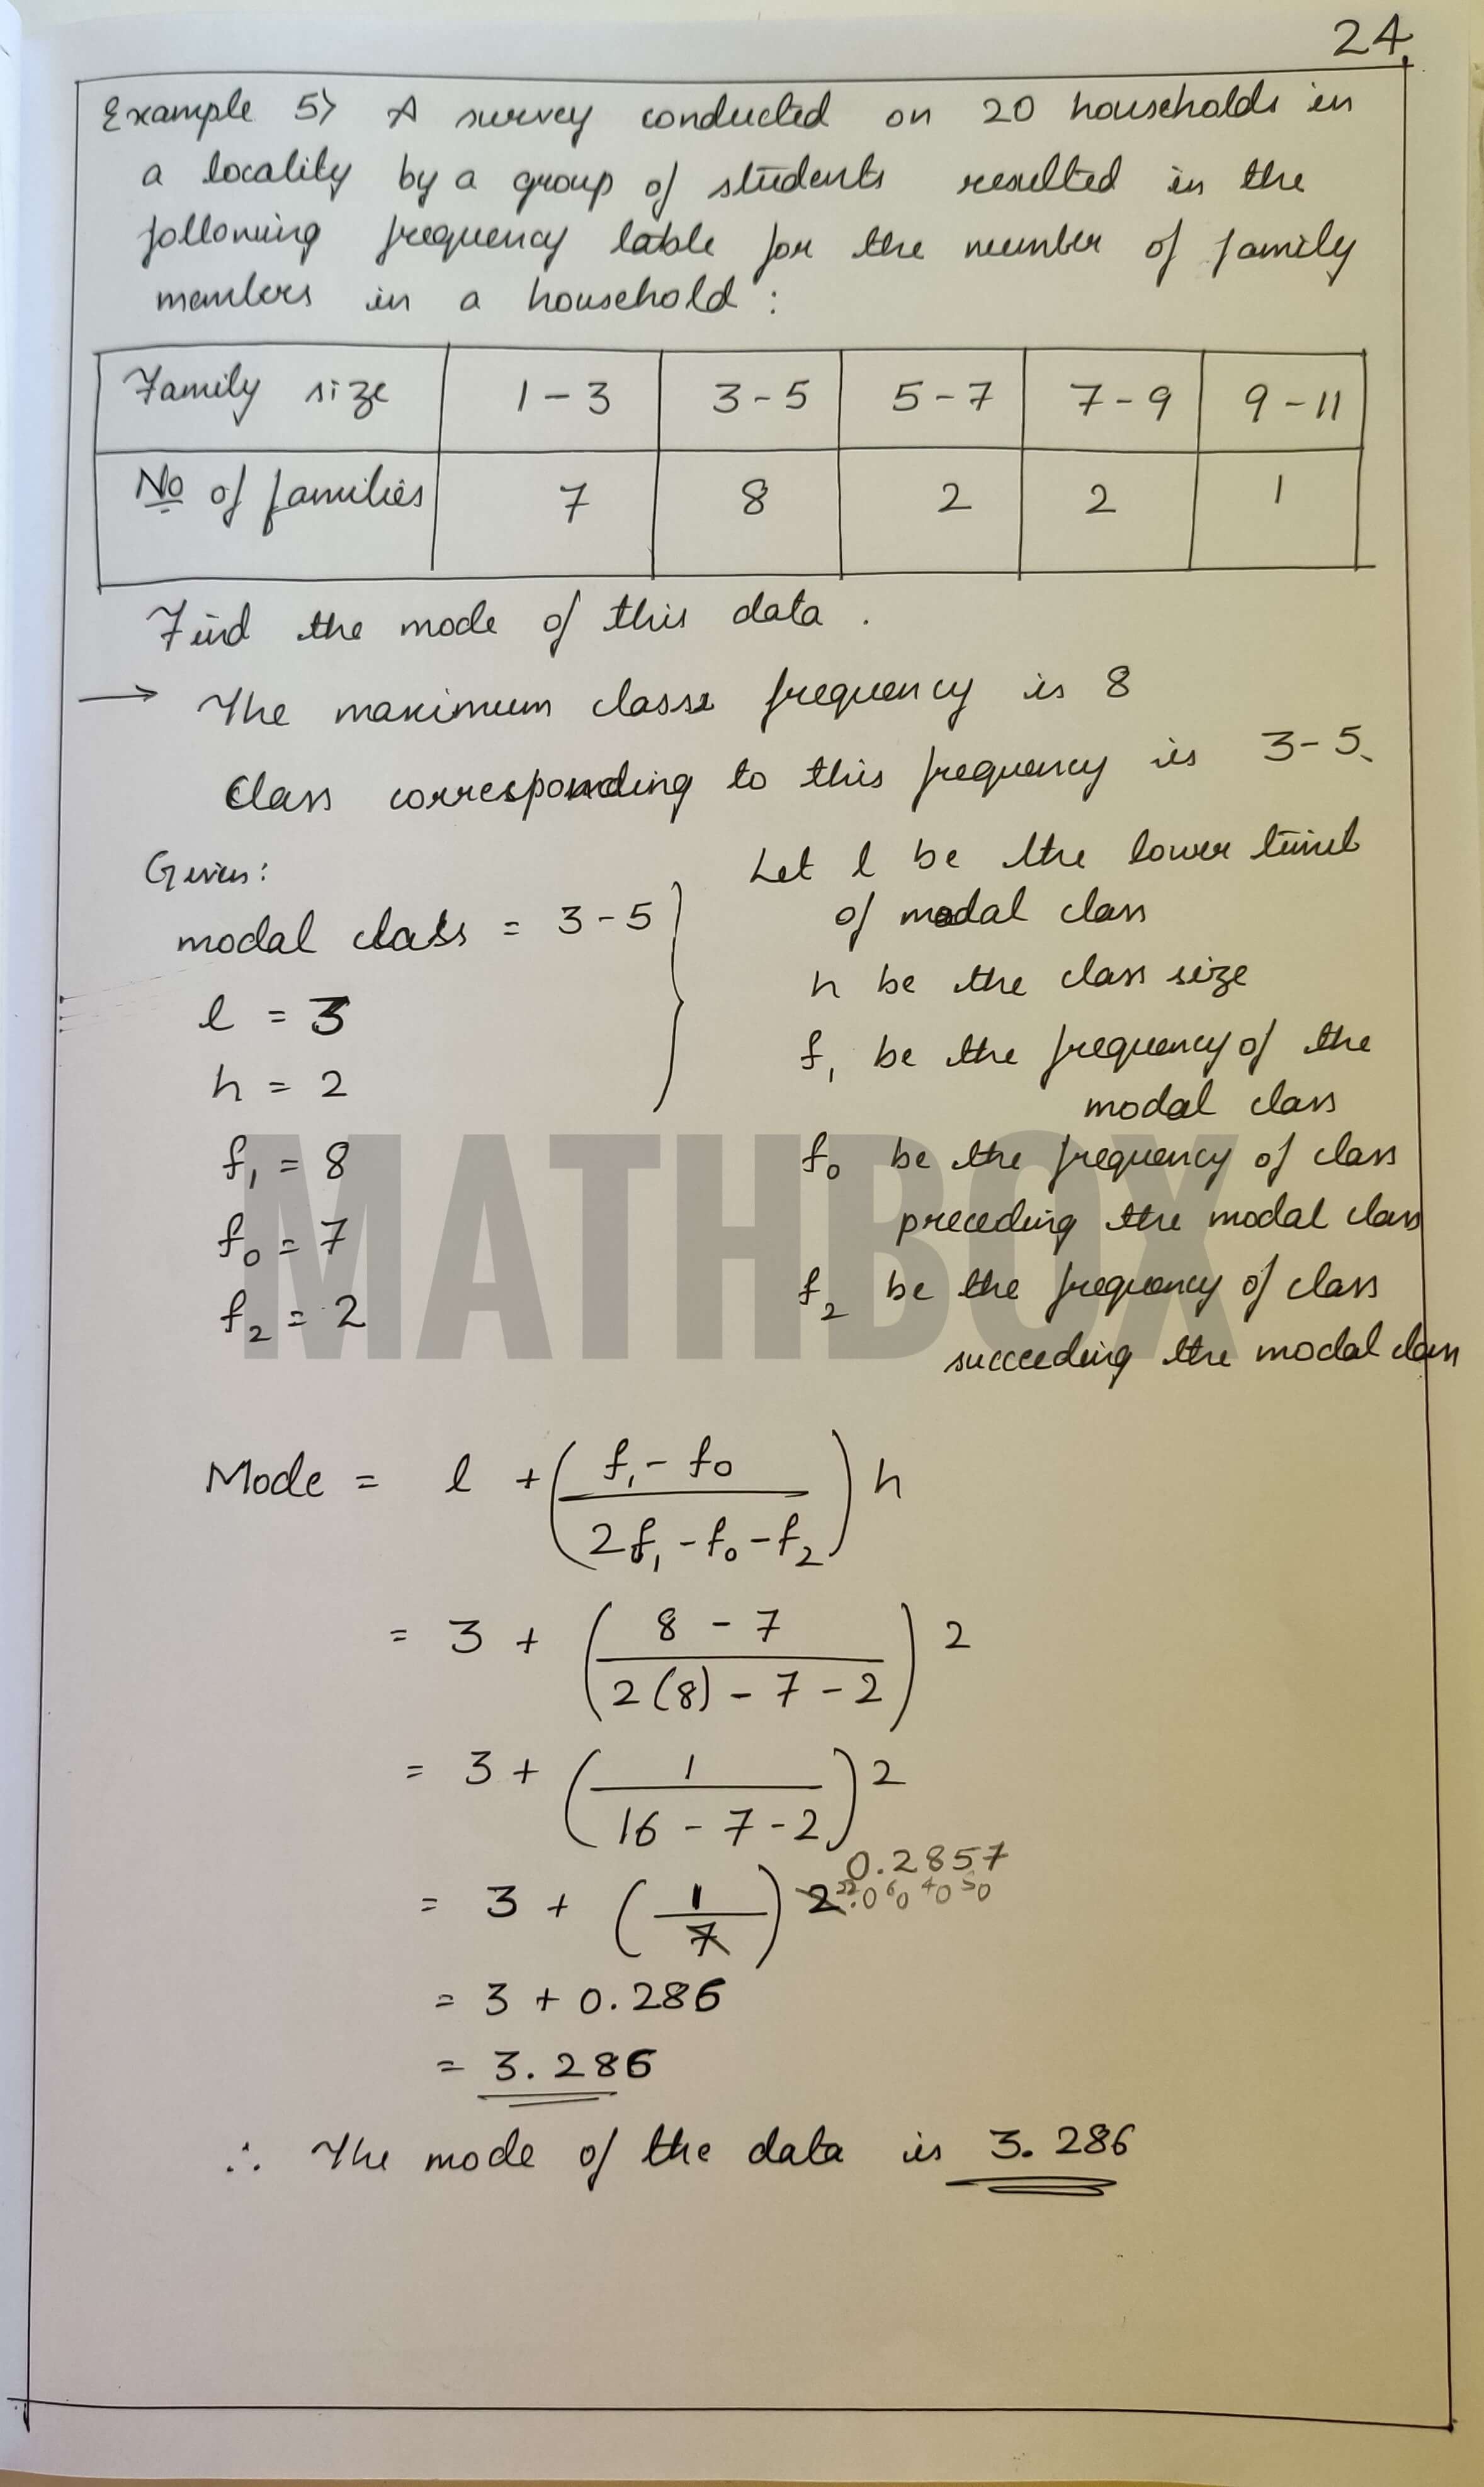 24.
Example 5> A survey conducted on 20 households in
a locality by a group of students resulted in the
following frequency table for the number of family
members in a household :
Family size 1-3 3-5 5-7 7-9 9-11
No of families 7 8 2 2 1
Find the mode of this data .
→ The maximum class frequency is 8
Class corresponding to this frequency is 3-5.
Given:
modal class = 3-5
l = 3
h = 2
f₁ = 8
f₀ = 7
f₂ = 2
Let l be the lower limit
of modal class
h be the class size
f₁ be the frequency of the
modal class
f₀ be the frequency of class
preceding the modal class
f₂ be the frequency of class
succeeding the modal class
MATHBOX
Mode = l + ( (f₁ - f₀) / (2f₁ - f₀ - f₂) ) h
= 3 + ( (8 - 7) / (2(8) - 7 - 2) ) 2
= 3 + ( 1 / (16 - 7 - 2) ) 2
0.2857
= 3 + ( 1 / 7 ) 2
= 3 + 0.286
= 3.286
∴ The mode of the data is 3.286